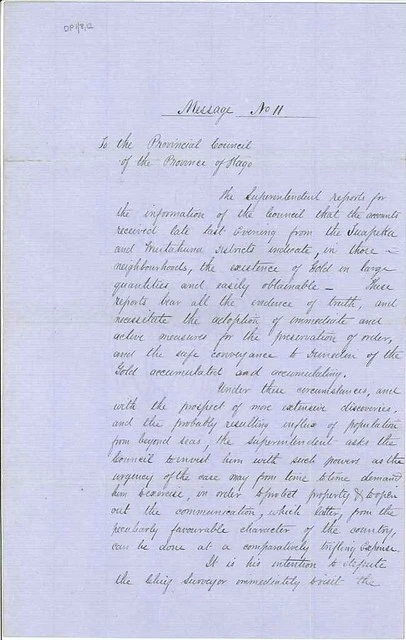 OP1/8/2
Message No 11
To the Provincial Council
of the Province of Otago
The Superintendent reports for
the information of the Council that the accounts
received late last Evening from the Tuapika
and Waitahuna Districts indicate, in those
neighbourhoods, the existence of Gold in large
quantities and easily obtainable – These
reports bear all the evidence of truth, and
necessitate the adoption of immediate and
active measures for the preservation of order,
and the safe conveyance to Dunedin of the
Gold accumulated and accumulating.
Under these circumstances, and
with the prospect of more extensive discoveries,
and the probably resulting influx of population
from beyond seas, the Superintendent asks the
Council to invest him with such powers as the
urgency of the case may from time to time demand
him to exercise, in order to protect property & to open
out the communication, which latter, from the
peculiarly favourable character of the country,
can be done at a comparatively trifling Expense
It is his intention to depute
the Chief Surveyor immediately to visit the